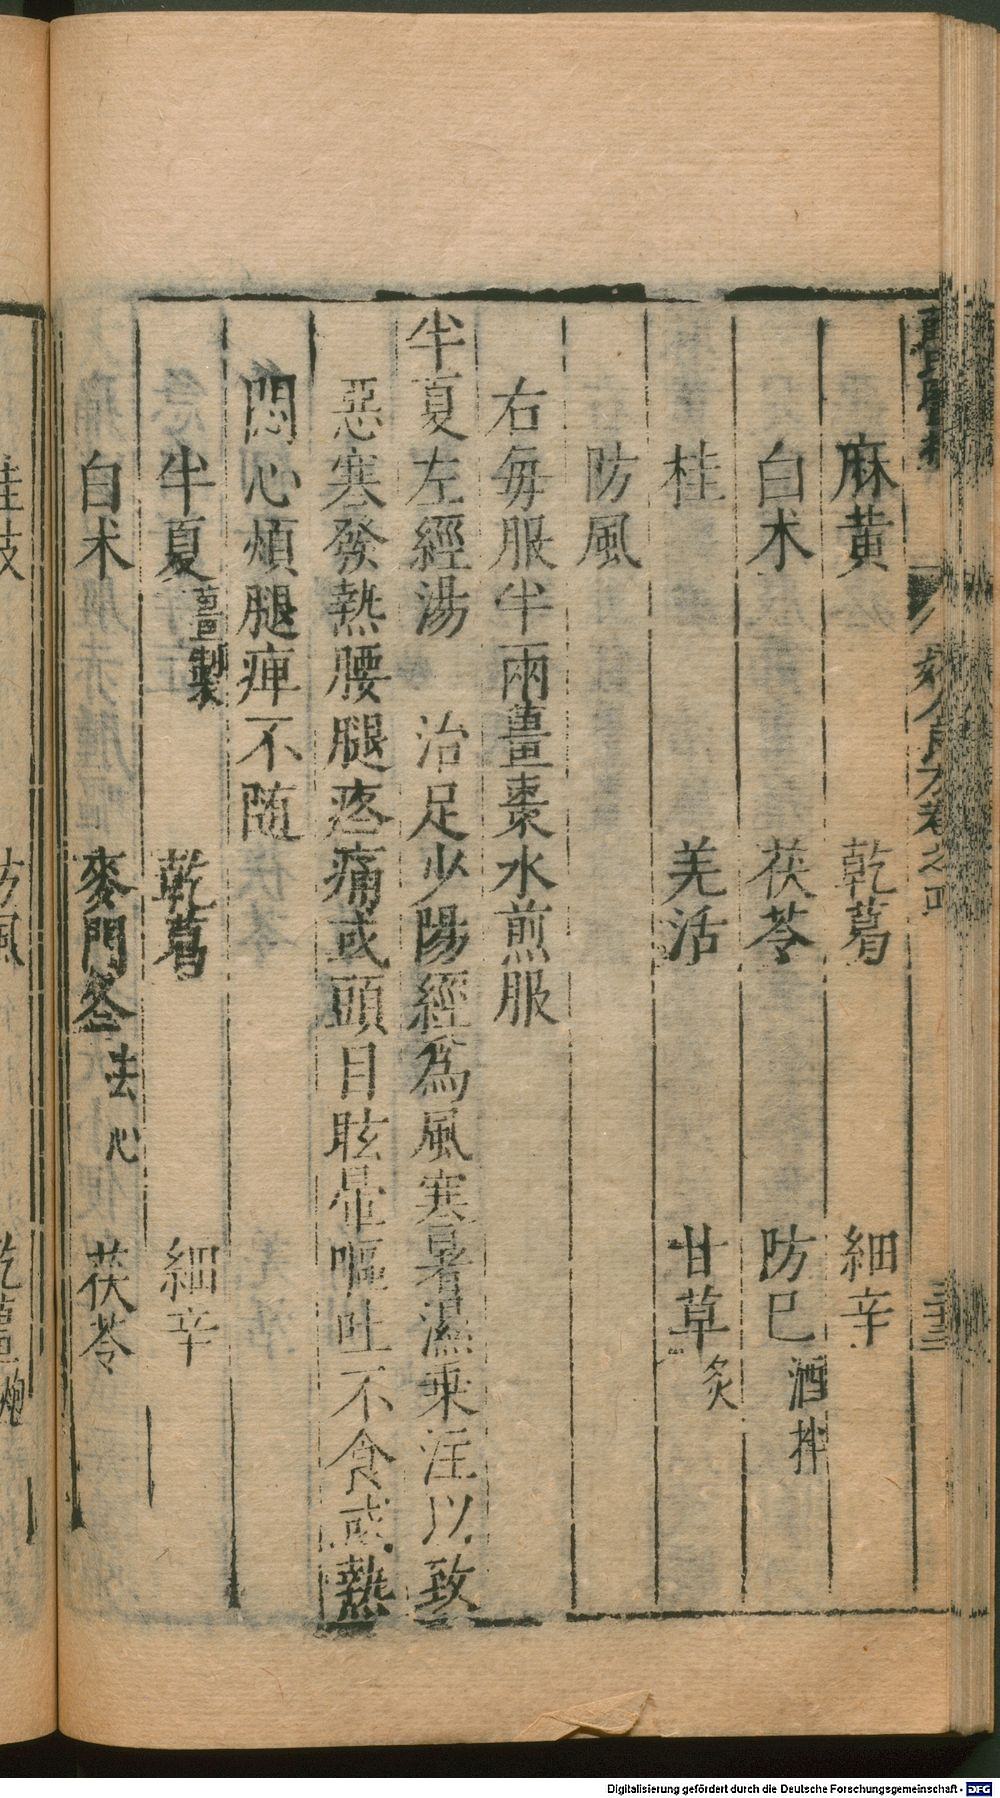 麻黄　乾葛　細辛
白术　茯苓　防巳酒拌
桂　羌活　甘草炙
防風
右每服半兩薑棗水煎服
半夏左經湯　治足少陽經為風寒暑濕乘注以致
惡寒發熱腰腿疼痛或頭目眩暈嘔吐不食或熱
悶心煩腿痺不随
半夏薑製　乾葛　細辛
白术　麥門冬去心　茯苓
婦人良方卷之四
Digitalisierung gefördert durch die Deutsche Forschungsgemeinschaft - DFG